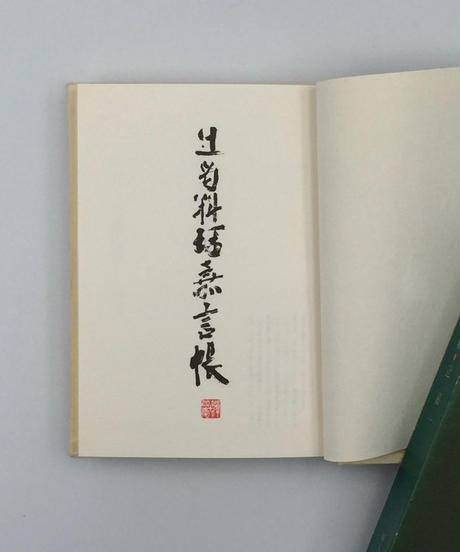 辻留料理嘉言帳